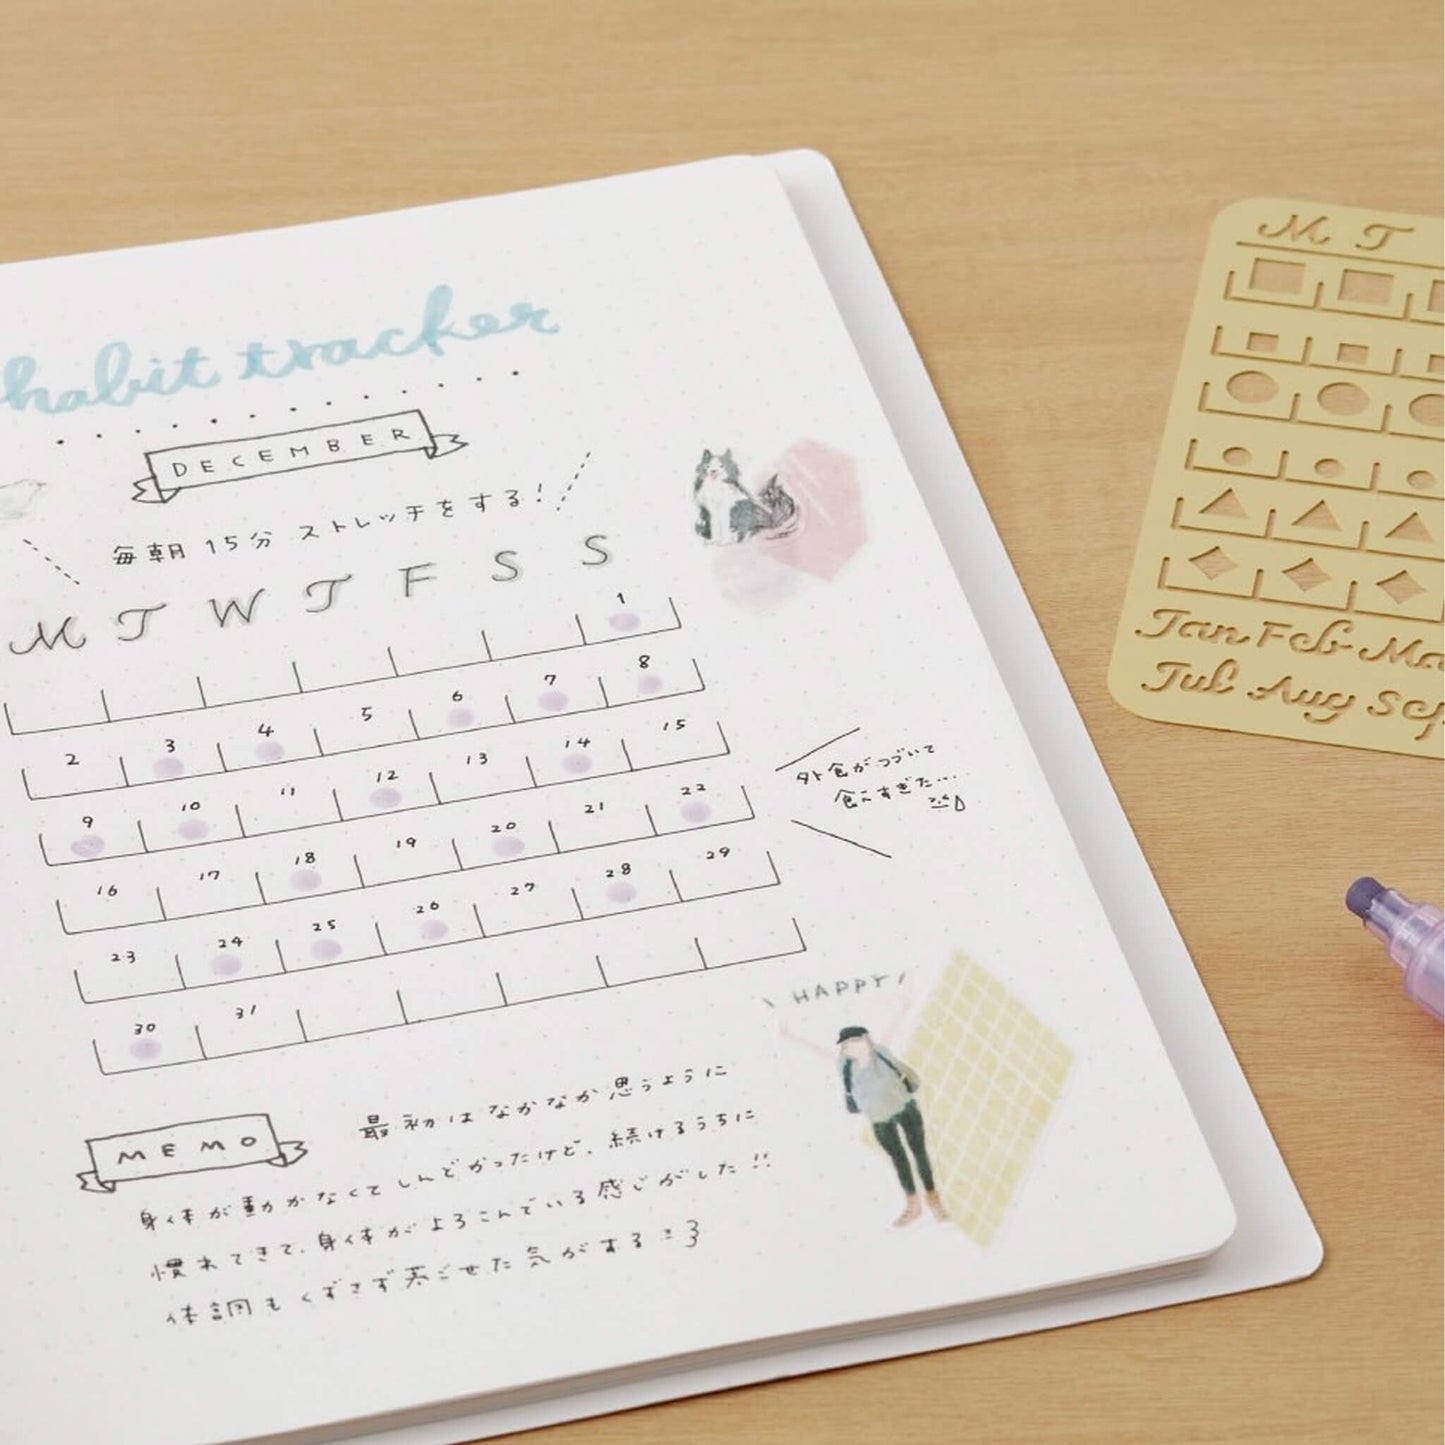 habit tracker
DECEMBER
毎朝15分 ストレッチをする!
M T W T F S S
1
2 3 4 5 6 7 8
9 10 11 12 13 14 15
16 17 18 19 20 21 22
23 24 25 26 27 28 29
30 31
外食がつづいて
食べすぎた...
HAPPY
MEMO
最初はなかなか思うように
身体が動かなくてしんどかったけど、続けるうちに
慣れてきて、身体がよろこんでいる感じがした!!
体調もくずさず過ごせた気がする
M T
Jan Feb Ma
Jul Aug Sep